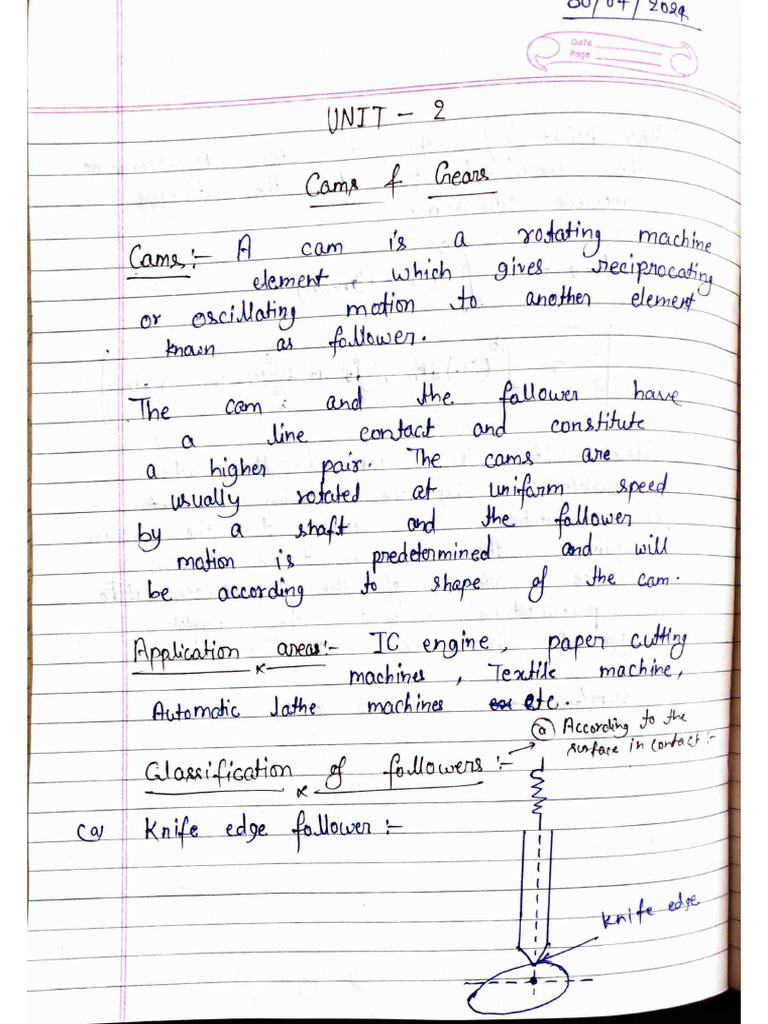 30/04/2024
Date
Page
UNIT - 2
Cams & Gears
Cams:- A cam is a rotating machine
element, which gives reciprocating
or oscillating motion to another element
known as follower.
The cam and the follower have
a line contact and constitute
a higher pair. The cams are
usually rotated at uniform speed
by a shaft and the follower
motion is predetermined and will
be according to shape of the cam.
Application areas:- IC engine, paper cutting
machines, Textile machine,
Automatic lathe machines etc.
Classification of followers:- → (a) According to the
surface in contact:-
(a) Knife edge follower:-
Knife edge